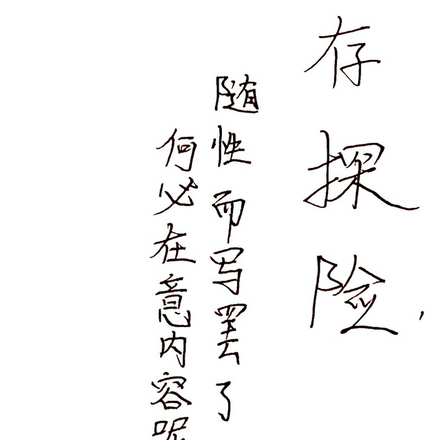 存探险
随性而写罢了
何必在意内容呢